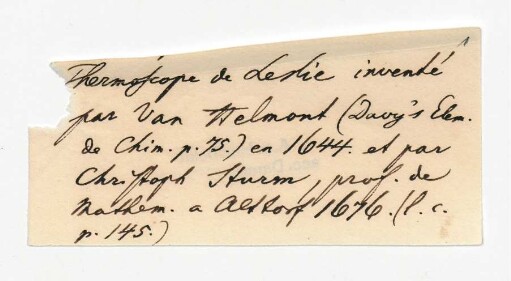 Thermoscope de Leslie inventé
par Van Helmont (Davy's Elem.
de Chim. p. 75.) en 1644. et par
Christoph Sturm, prof. de
Mathem. a Altdorf 1676. (l. c.
p. 145.)